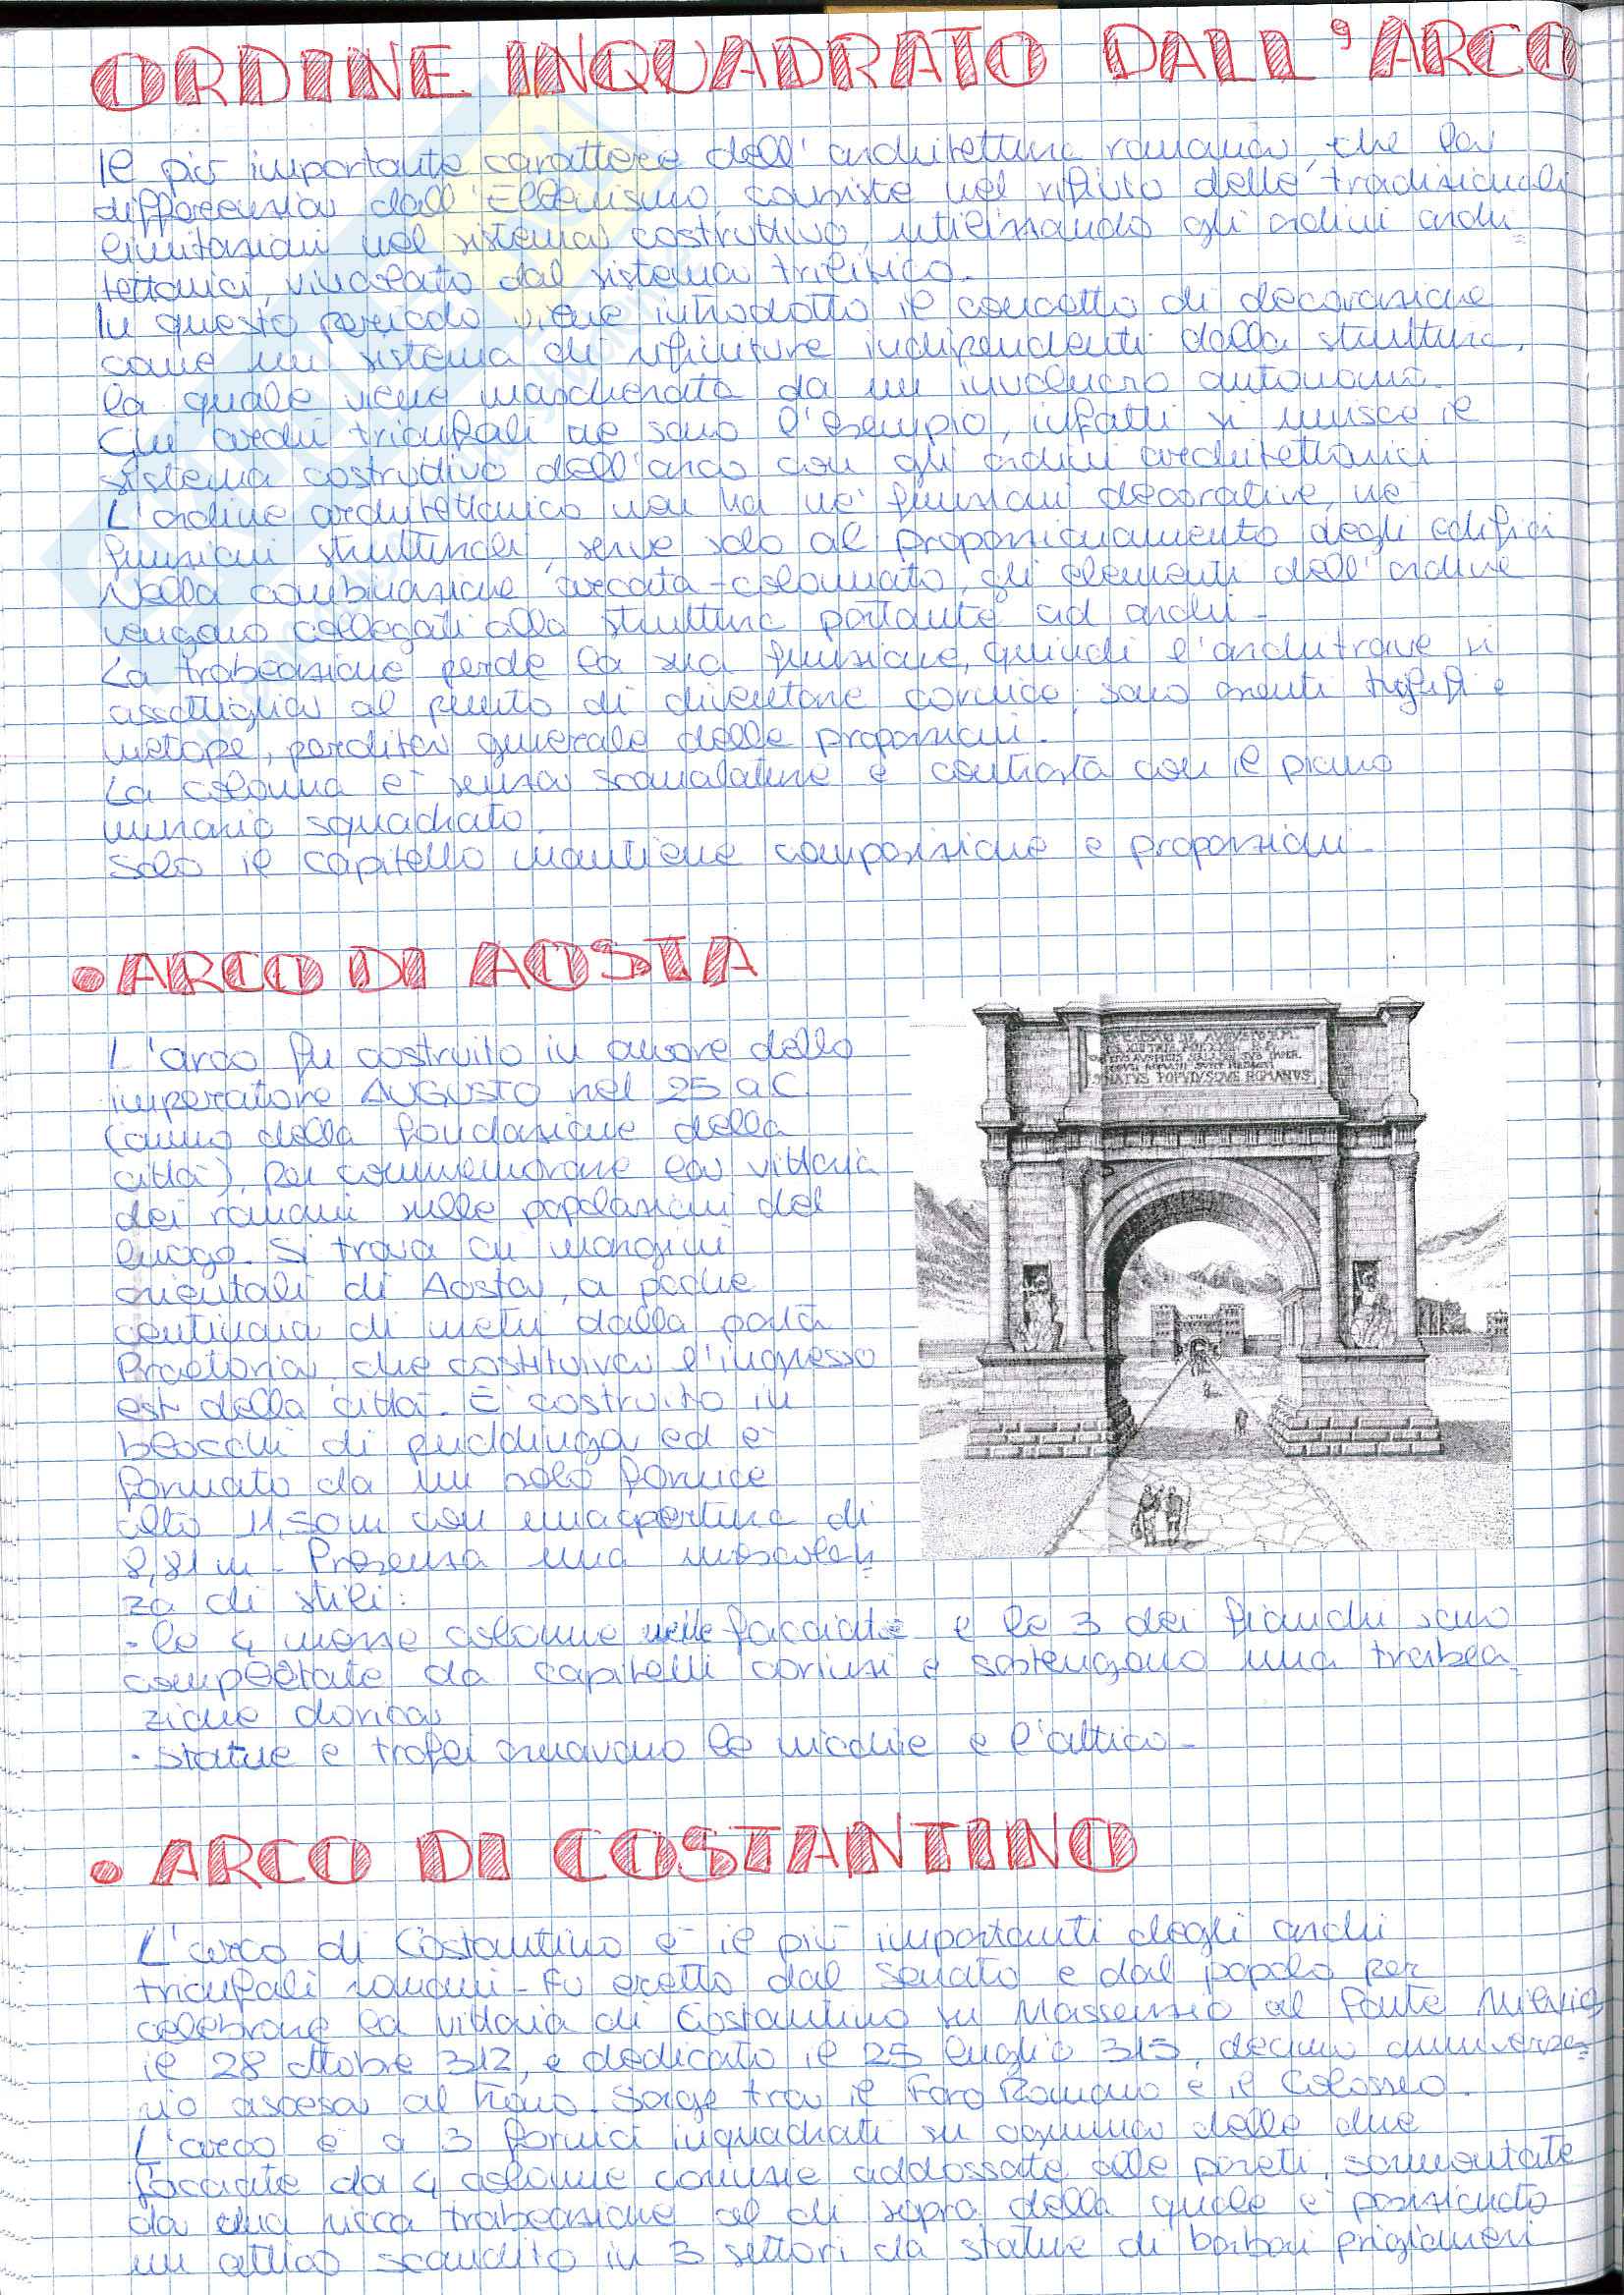 ORDINE INQUADRATO DALL'ARCO
Il più importante carattere dell'architettura romana, che la
differenzia dall'Ellenismo, consiste nel rifiuto delle tradizionali
limitazioni nel sistema costruttivo, utilizzando gli ordini archi
tettonici, vincolato dal sistema trilitico.
In questo periodo viene introdotto il concetto di decorazione
come un sistema di rifiniture indipendenti dalla struttura,
la quale viene mascherata da un involucro autonomo.
Gli archi trionfali ne sono l'esempio, infatti si unisce il
sistema costruttivo dell'arco con gli ordini architettonici
L'ordine architettonico non ha nè funzioni decorative, nè
funzioni strutturali, serve solo al proporzionamento degli edifici
Nella combinazione arcata-colonnato, gli elementi dell'ordine
vengono collegati alla struttura portante ad archi.
La trabeazione perde la sua funzione, quindi l'architrave si
assottiglia al punto di diventare cornice; sono assenti triglifi e
metope, perdita generale delle proporzioni.
La colonna è senza scanalature e contrasta con il piano
murario squadrato.
Solo il capitello mantiene composizione e proporzioni.
• ARCO DI AOSTA
L'arco fu costruito in onore dello
imperatore AUGUSTO nel 25 a.C.
(anno della fondazione della
città), per commemorare la vittoria
dei romani sulle popolazioni del
luogo. Si trova ai margini
orientali di Aosta, a poche
centinaia di metri dalla porta
Praetoria che costituiva l'ingresso
est della città. È costruito in
blocchi di puddinga ed è
formato da un solo fornice
alto 11,50m con una apertura di
8,81 m. Presenza una mescolan
za di stili:
- le 4 mezze colonne nelle facciate e le 3 dei fianchi sono
completate da capitelli corinzi e sostengono una trabea
zione dorica
- statue e trofei ornavano le nicchie e l'attico.
SENATVS POPVLVSQVE ROMANVS
• ARCO DI COSTANTINO
L'arco di Costantino è il più importanti degli archi
trionfali romani. Fu eretto dal Senato e dal popolo per
celebrare la vittoria di Costantino su Massenzio al Ponte Milvio
il 28 ottobre 312, e dedicato il 25 luglio 315, decimo anniversa
rio ascesa al trono. Sorge tra il Foro Romano e il Colosseo.
L'arco è a 3 fornici inquadrati su ognuna delle due
facciate da 4 colonne corinzie addossate alle pareti, sormontate
da una ricca trabeazione al di sopra della quale è posizionato
un attico scandito in 3 settori da statue di barbari prigionieri